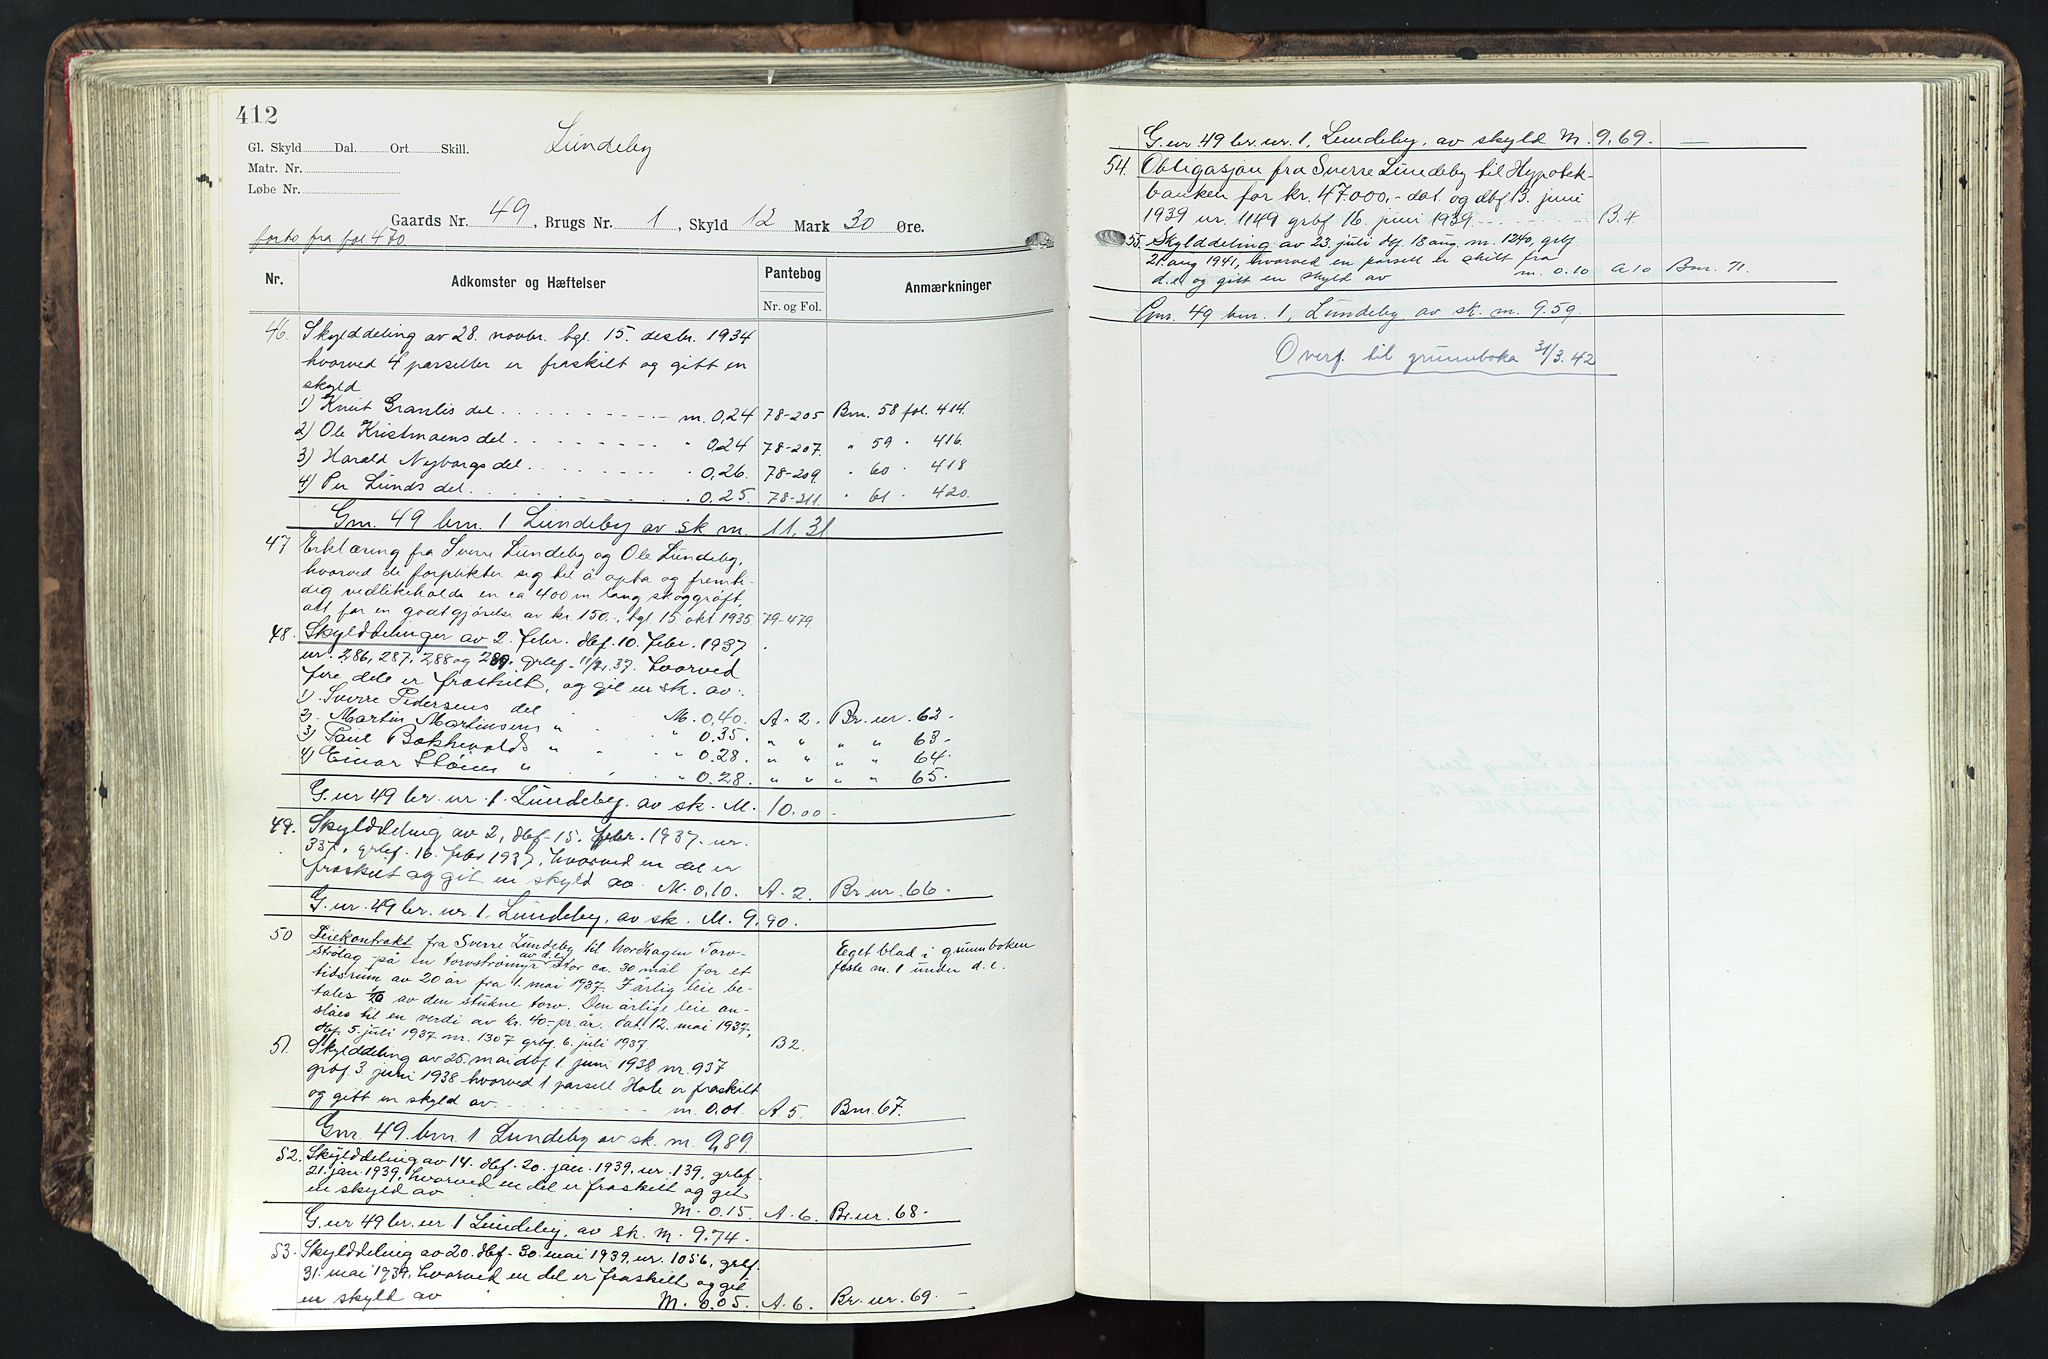 412
Lundeby
Gl. Skyld Dal. Ort Skill.
Matr. Nr.
Løbe Nr.
Gaards Nr. 49, Brugs Nr. 1, Skyld 12 Mark 30 Øre.
forts fra fol 470
Nr. Adkomster og Hæftelser Pantebog Nr. og Fol. Anmærkninger
46. Skylddeling av 28. novbr. tgl. 15. desbr. 1934
hvorved 4 parseller er fraskilt og gitt en
skyld
1) Knut Granlis del m. 0,24 78-205 Bnr. 58 fol. 414.
2) Ole Kristmoens del " 0,24 78-207. " 59 " 416.
3) Harald Nyborgs del " 0,26. 78-209. " 60 " 418
4) Per Lunds del " 0.25. 78-211. " 61 " 420.
Gnr. 49 bnr. 1 Lundeby av sk m. 11,31
47 Erklæring fra Sverre Lundeby og Ole Lundeby,
hvorved de forplikter sig til å opta og fremti-
dig vedlikeholde en ca 400 m lang skoggrøft,
alt for en godtgjørelse av kr 150.-, tgl 15 okt 1935 79-479.
48. Skylddelinger av 2. febr. dbf. 10. febr. 1937
nr. 286, 287, 288 og 289, grbf. 11/2. 37. hvorved
fire dele er fraskilt, og git en sk. av:
1). Sverre Pedersens del M. 0,40. A. 2. Br. nr. 62.
2). Martin Martinsens " " 0.35. " " " " 63.
3) Paul Bakkevolds " " 0.28. " " " " 64.
4) Einar Støens " " 0.28. " " " " 65.
G. nr 49 br. nr. 1. Lundeby. av sk. M. 10.00.
49. Skylddeling av 2, dbf. 15. febr. 1937. nr.
337, grbf. 16. febr 1937, hvorved en del er
fraskilt og git en skyld av. M. 0,10. A. 2. Br. nr. 66.
G. nr. 49 br. nr 1, Lundeby, av sk. M. 9.90.
50 Leiekontrakt fra Sverre Lundeby til Nordhagen Torv- Eget blad i grunnboken
strølag på en torvstrømyr av d.e. stor ca. 30 mål for et feste nr. 1 under d.e.
tidsrum av 20 år fra 1. mai 1937. I årlig leie be-
tales 1/20 av den stukne torv. Den årlige leie an-
slåes til en verdi av kr. 40.- pr. år. dat. 12. mai 1937,
dbf. 5. juli 1937 nr. 1307 grbf. 6. juli 1937. B2.
51. Skylddeling av 25. mai dbf. 1. juni 1938 nr. 937
grbf. 3. juni 1938 hvorved 1 parsell er fraskilt
og gitt en skyld av m. 0,01. A. 5. Bnr. 67.
Gnr. 49. bnr. 1 Lundeby av sk. m. 9,89.
52. Skylddeling av 14. dbf. 20. jan. 1939, nr. 139, grbf.
21. jan. 1939, hvorved en del er fraskilt og git
en skyld av M. 0.15. A. 6. Br. nr. 68.
G. nr 49 br. nr 1 Lundeby, av sk. M. 9.74.
53. Skylddeling av 20. dbf. 30. mai 1939, nr. 1056, grbf.
31. mai 1939, hvorved en del er fraskilt og git
en skyld av M. 0.05. A. 6. Br. nr. 69.
G. nr. 49 br. nr. 1, Lundeby, av skyld M. 9.69.
54. Obligasjon fra Sverre Lundeby til Hypotek-
banken for kr. 47.000,- dat. og dbf 13. juni
1939 nr. 1149 grbf 16. juni 1939. B.4
55. Skylddeling av 23. juli dbf. 18 aug. nr. 1240, grbf
21. aug 1941, hvorved en parsell er skilt fra
d.e. og gitt en skyld av m. 0.10 A10 Bnr. 71.
Gnr. 49 bnr. 1, Lundeby av sk. m. 9.59.
Overf. til grunnboka 31/3. 42